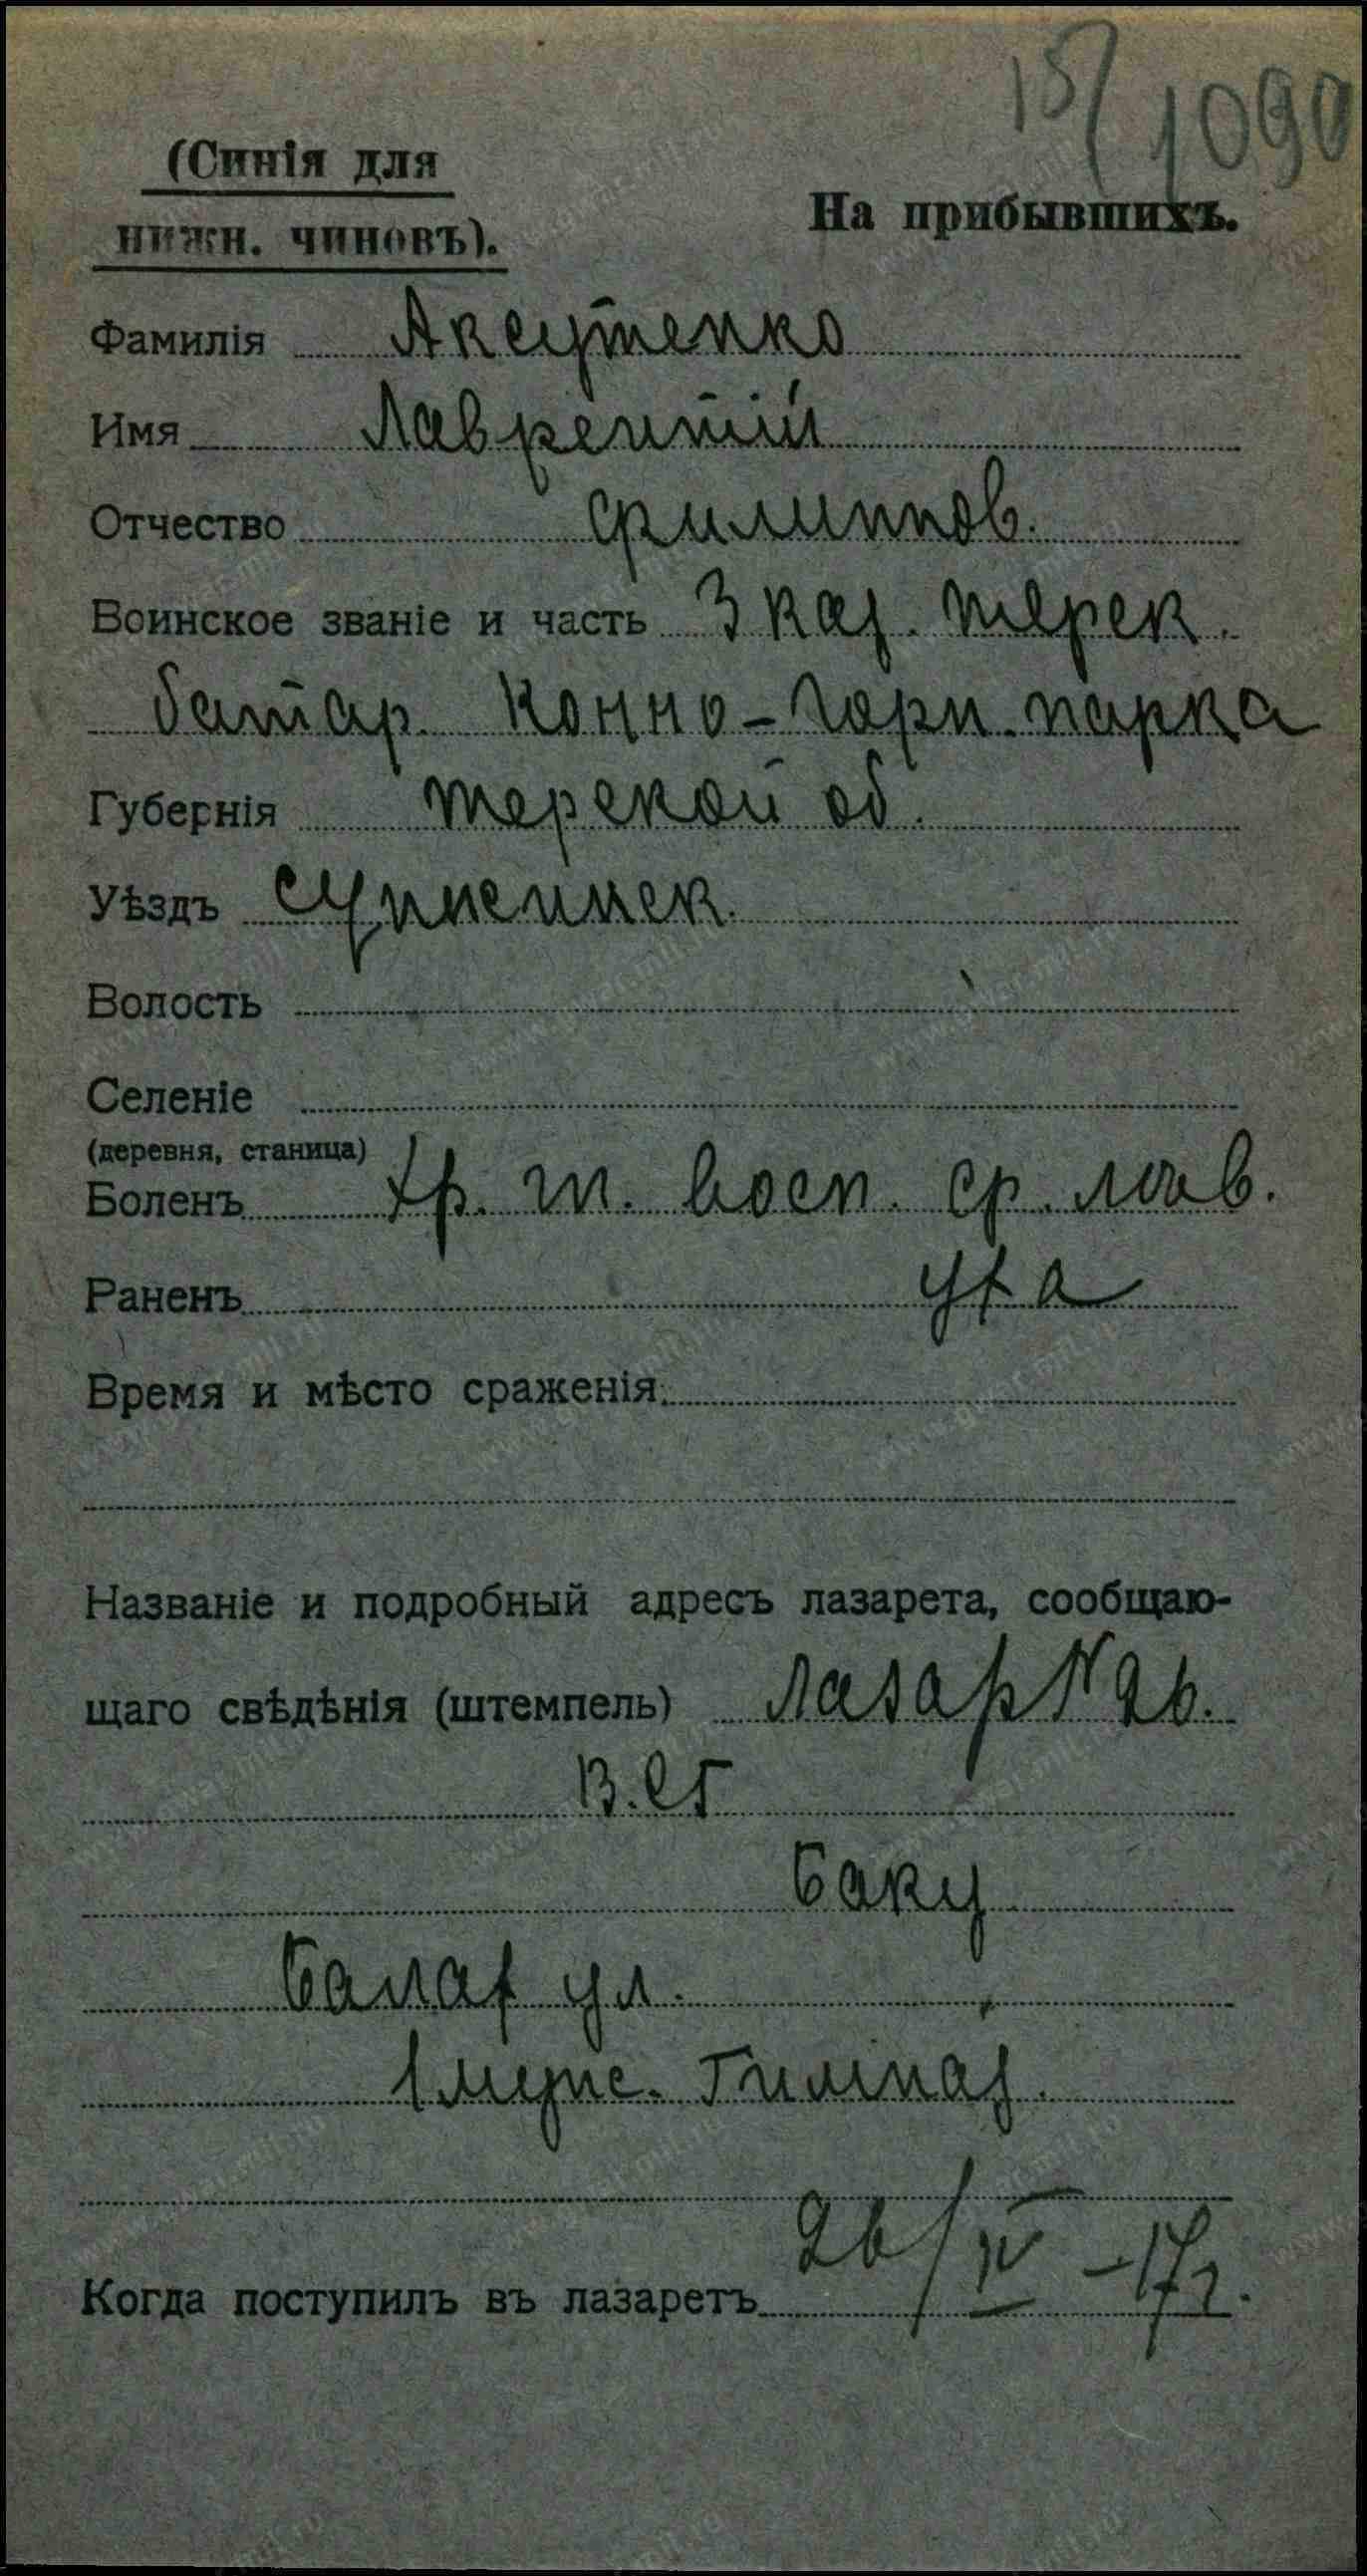 15/1090
(Синія для
нижн. чиновъ).
На прибывшихъ.
Фамилія Аксутенко
Имя Лаврентій
Отчество Филиппов.
Воинское званіе и часть 3 каз. терек.
батар. Конно-горн. парка
Губернія терской об.
Уѣздъ сунженск.
Волость
Селеніе
(деревня, станица)
Боленъ Хр. гн. восп. ср. лѣв.
Раненъ уха
Время и мѣсто сраженія.
Названіе и подробный адресъ лазарета, сообщаю-
щаго свѣдѣнія (штемпель) Лазар № 26.
В.С.Г
Баку
Балах ул.
1 мужс. Гимназ.
Когда поступилъ въ лазаретъ 26/IV – 17 г.